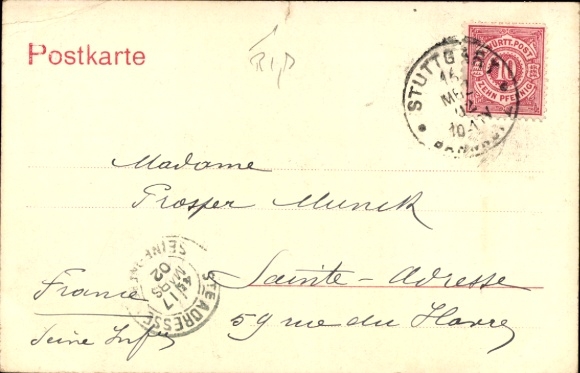 Postkarte
STUTTGART
16
MRZ
02
10-11 V
WÜRTT. POST
10
ZEHN PFENNIG
Madame
Prosper Munck
Sainte-Adresse
59 rue du Havre
France
Seine Infre
STE ADRESSE
SEINE-INF
17
MARS
02